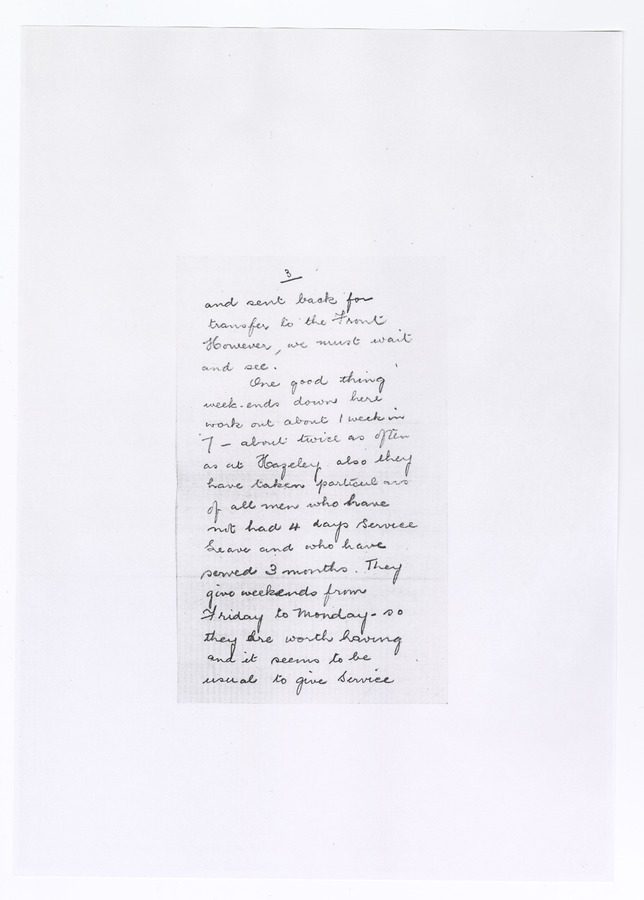 3
and sent back for
transfer to the Front
However, we must wait
and see.
One good thing
week-ends down here
work out about 1 week in
7 - about twice as often
as at Hazeley, also they
have taken particulars
of all men who have
not had 4 days Service
Leave and who have
served 3 months. They
give weekends from
Friday to Monday - so
they are worth having
and it seems to be
usual to give Service